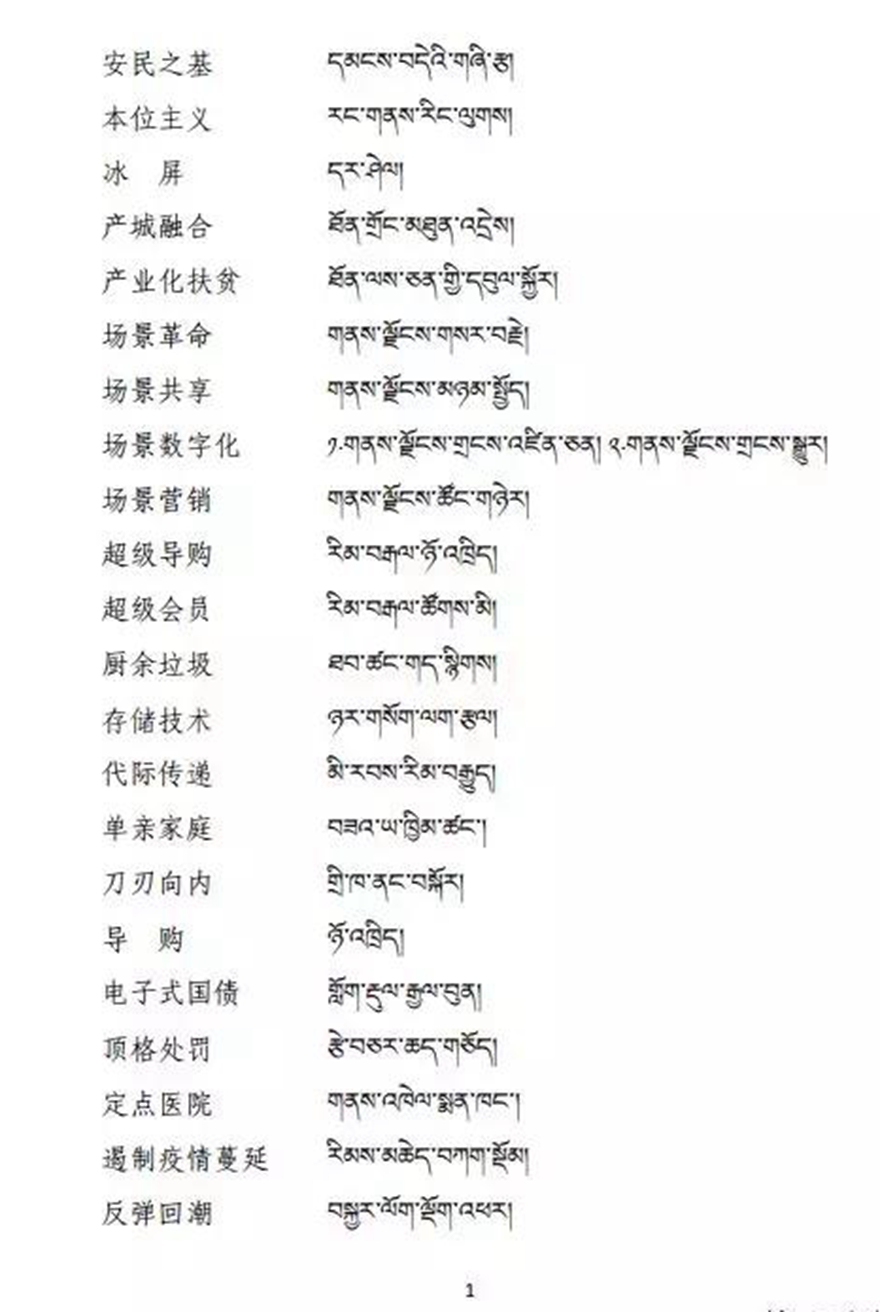 安民之基 དམངས་བདེའི་གཞི་རྩ།
本位主义 རང་གནས་རིང་ལུགས།
冰　屏 དར་ཤེལ།
产城融合 ཐོན་གྲོང་མཐུན་འདྲེས།
产业化扶贫 ཐོན་ལས་ཅན་གྱི་དབུལ་སྐྱོར།
场景革命 གནས་ལྗོངས་གསར་བརྗེ།
场景共享 གནས་ལྗོངས་མཉམ་སྤྱོད།
场景数字化 ༡.གནས་ལྗོངས་གྲངས་འཛིན་ཅན། ༢.གནས་ལྗོངས་གྲངས་སྒྱུར།
场景营销 གནས་ལྗོངས་ཚོང་གཉེར།
超级导购 རིམ་བརྒལ་ཉོ་འཁྲིད།
超级会员 རིམ་བརྒལ་ཚོགས་མི།
厨余垃圾 ཐབ་ཚང་གད་སྙིགས།
存储技术 ཉར་གསོག་ལག་རྩལ།
代际传递 མི་རབས་རིམ་བརྒྱུད།
单亲家庭 བཟའ་ཡ་ཁྱིམ་ཚང་།
刀刃向内 གྲི་ཁ་ནང་བསྐོར།
导　购 ཉོ་འཁྲིད།
电子式国债 གློག་རྡུལ་རྒྱལ་བུན།
顶格处罚 རྩེ་བཅར་ཆད་གཅོད།
定点医院 གནས་འཁེལ་སྨན་ཁང་།
遏制疫情蔓延 རིམས་མཆེད་བཀག་སྡོམ།
反弹回潮 བསྐྱར་ལོག་ལྡོག་འཕར།
1